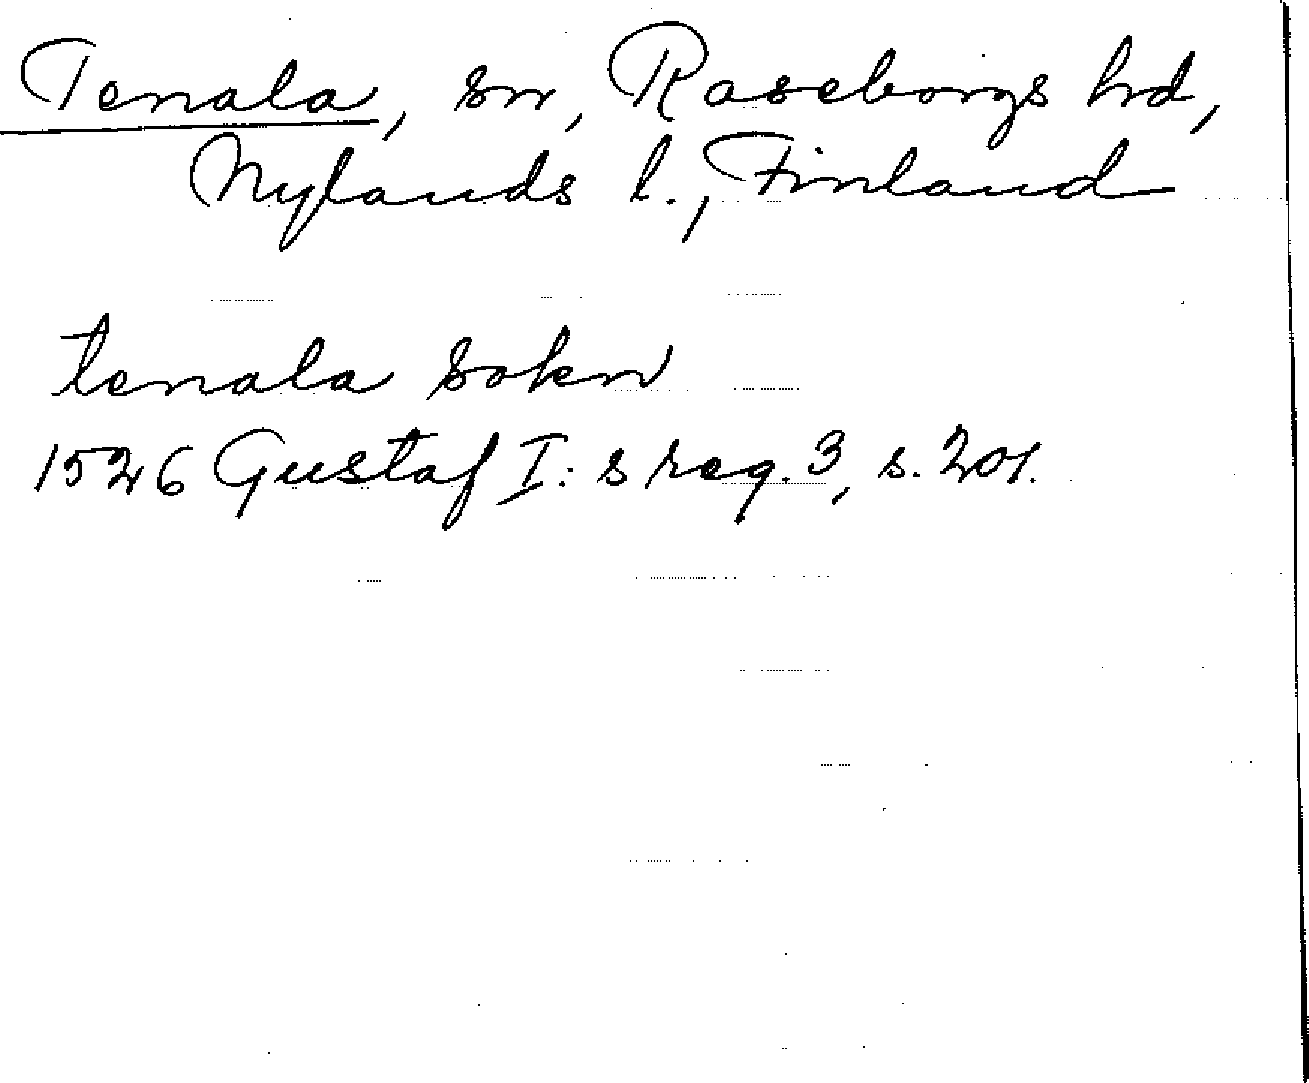 Tenala, sn, Raseborgs hd,
Nylands l., Finland
tenala sokn
1526 Gustaf I:s reg. 3, s. 201.